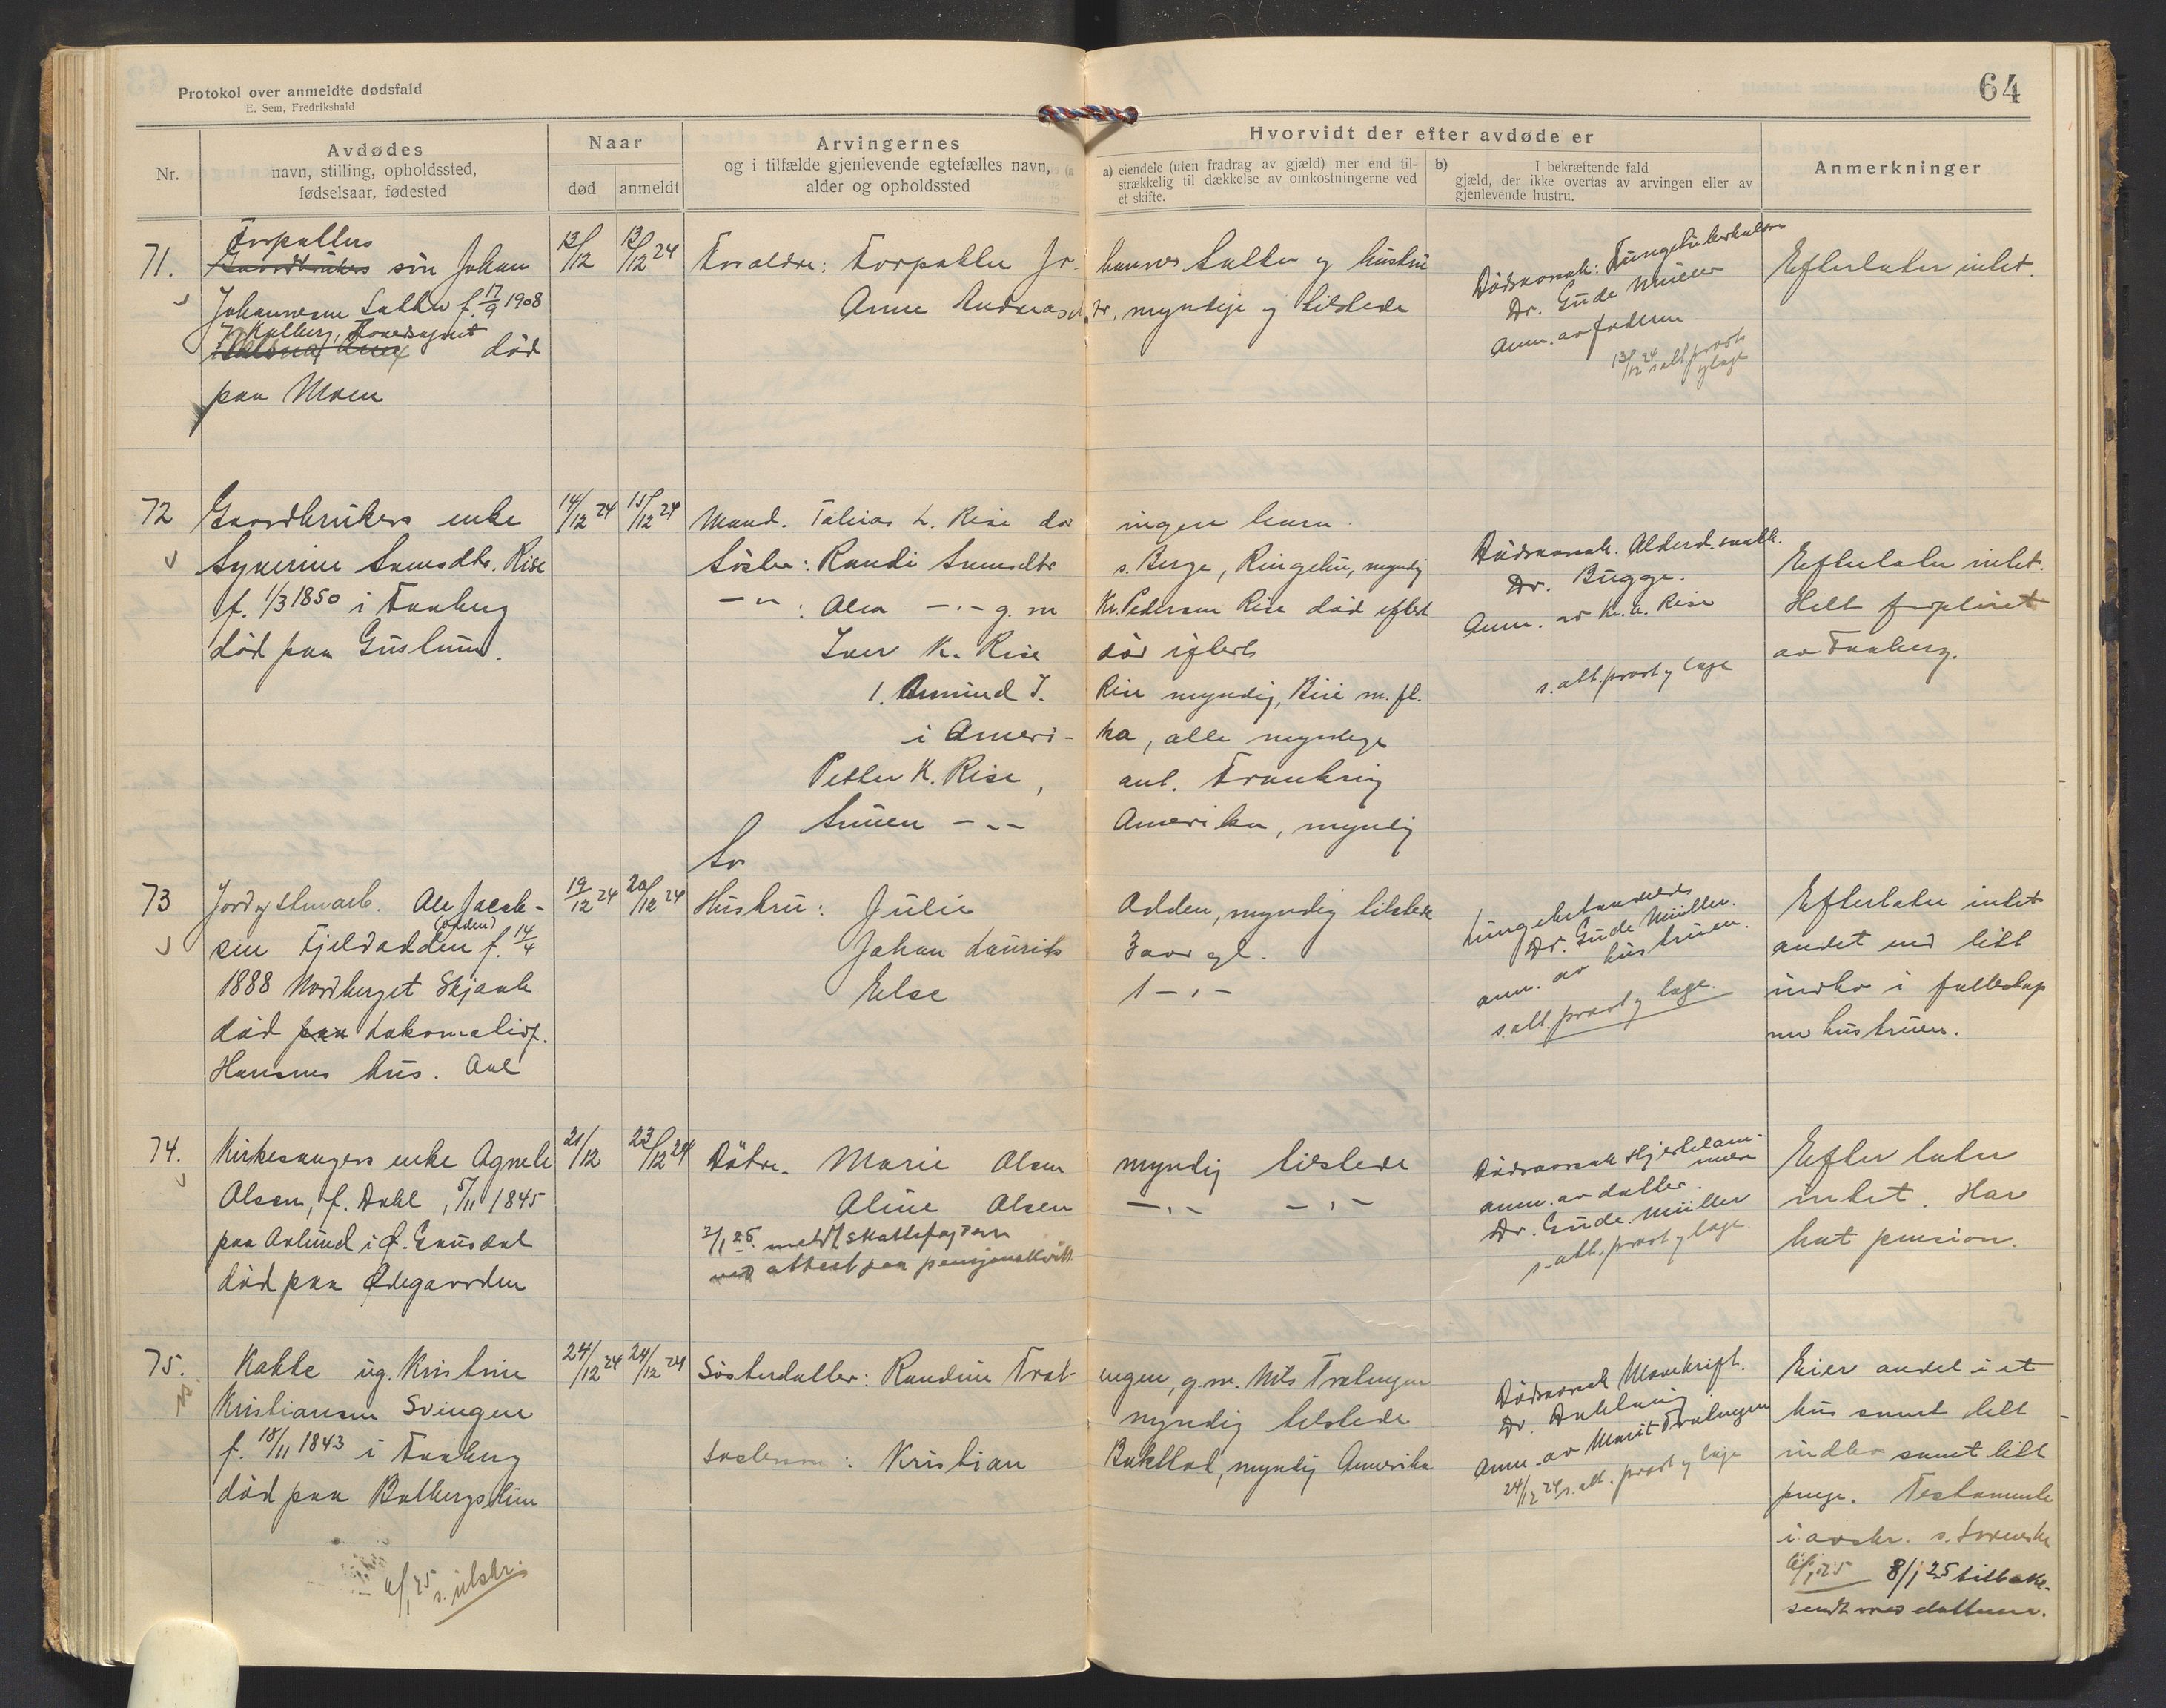 Protokol over anmeldte dødsfald
E. Sem, Fredrikshald
64
Nr.
Avdødes
navn, stilling, opholdssted,
fødselsaar, fødested
Naar
død
anmeldt
Arvingernes
og i tilfælde gjenlevende egtefælles navn,
alder og opholdssted
Hvorvidt der efter avdøde er
a) eiendele (uten fradrag av gjæld) mer end til-
strækkelig til dækkelse av omkostningerne ved
et skifte.
b) I bekræftende fald
gjæld, der ikke overtas av arvingen eller av
gjenlevende hustru.
Anmerkninger
71.
Forpakters
Gaardbrukers søn Johan
Johannesen f. 17/9 1908
død
paa Moen
13/12
13/12 24
Foraldre: Forpakter Jo-
hannes og hustru
Anne Andreasd.
tr, myndige og tilstede
Dødsaarsak: Tungetuberkulose
Dr. Gude Müller
Anm. av faderen
13/12 24 s. att. prost
og lage
Efterlater intet.
72
Gaardbrukers enke
Synerine Svensdtr. Rise
f. 1/3 1850 i Faaberg
død paa Guslund.
14/12 24
15/12 24
Mand. Tobias L. Rise dør
ingen barn.
Søster: Randi Svensdtr
s. Berge, Ringebu, myndig
— " — : Alea — " — g. m
Kr. Pedersen Rise død efterl
Iver K. Rise
død efterl
1. Amund I.
Rise myndig, Rise m. fl.
i Ameri-
ka, alle myndige
Petter K. Rise,
ant. Frankrig
Simen — " —
Amerika, myndig
Dødsaarsak. Alderd. svakh.
Dr. Bugge.
Anm. av K. K. Rise
s. att. prost og lage
Efterlater intet.
Helt forpleiet
av Faaberg.
73
Jord og stenarb. Ole Jacob-
(Odden)
sen Fjeldodden f. 14/4
1888 Nordberget Skjaak
død paa Lokomotivf.
Hansens hus. Aal
19/12 24
20/12 24
So
Hustru: Julie
Odden, myndig tilstede
Johan Laurits
3 aar gl.
Else
1 — " —
Lungebetændelse
Dr. Gude Müller.
anm. av hustruen.
s. att. prost og lage.
Efterlater intet
andet end litt
indbo i fælleskap
m hustruen.
74.
Kirkesangers enke Agnete
Olsen, f. Dahl, 5/11 1845
paa Aalund i Ø. Gausdal
død paa Ødegaarden
21/12
23/12 24
Døtre. Marie Olsen
myndig tilstede
Aline Olsen
— " — — " —
2/1 25 meldt skattefogden
ved attest paa pensjonskvitt.
Dødsaarsak Hjertelam-
melse
anm. av datter.
Dr. Gude Müller
s. att. prost og lage.
Efterlater
intet. Har
hat pension.
75.
Kakke ug. Kristine
Kristiansen Svingen
f. 18/11 1843 i Faaberg
død paa Balbergslien
24/12 24
24/12 24
Søsterdatter: Randine Trøt-
ungen, g. m. Nils Trølungen
myndig tilstede
Søstersøn: Kristian
Bakstad, myndig Amerika
Dødsaarsak Mavekræft.
Dr. Dahl
anm. av Marit
24/12 24 s. att. prost og lage
Eier andel i et
hus samt litt
indbo samt litt
penge. Testamente
i avskr. s. Sorenskr
6/1 25 8/1 25 tilbake-
sendt med datteren.
6/1 25 s. utskr.